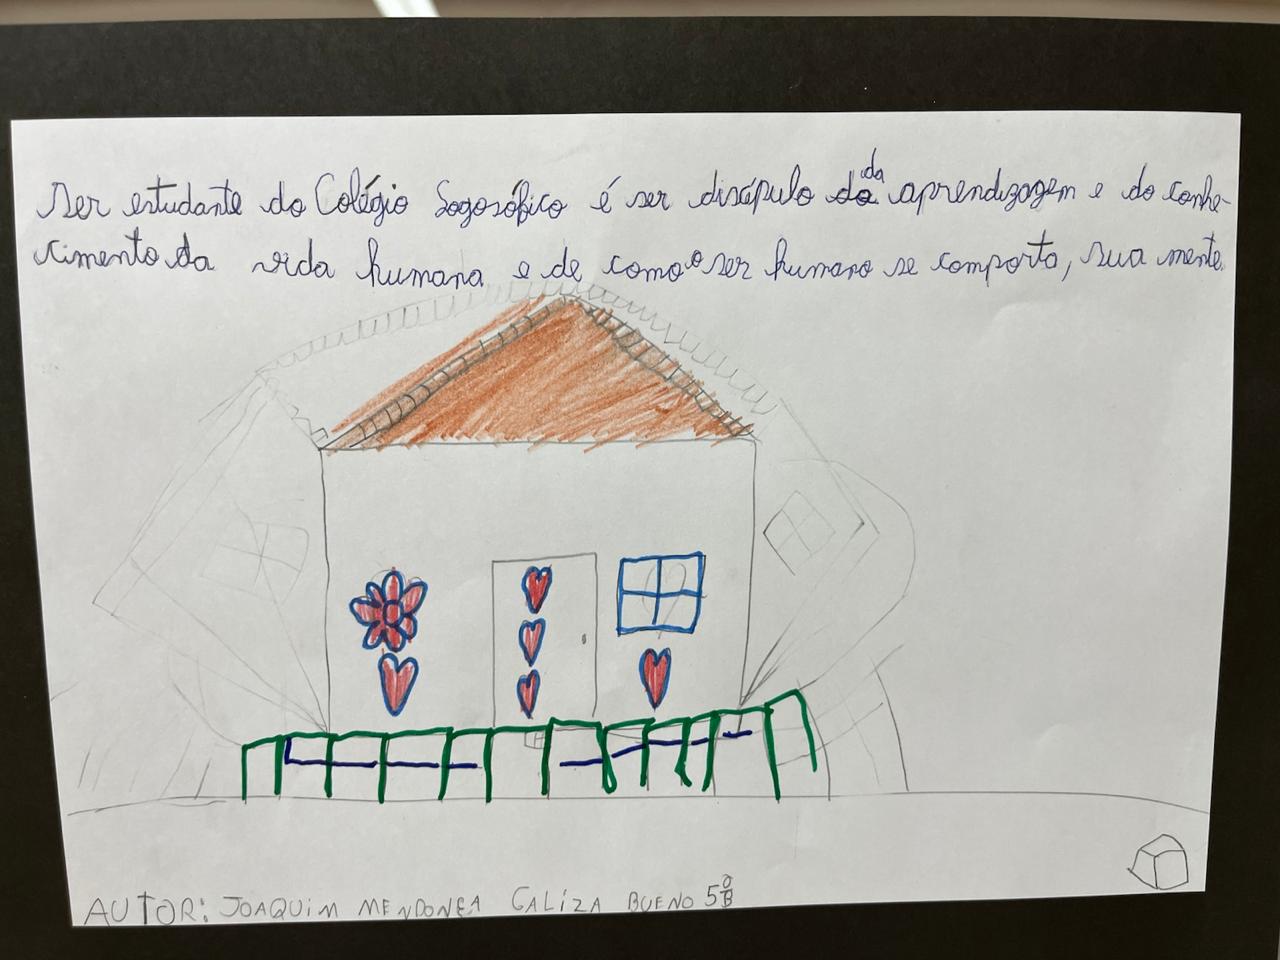 Ser estudante do Colégio Sogosófico é ser discípulo da da aprendizagem e do conhe-
cimento da vida humana e de como o ser humano se comporta, sua mente.
AUTOR: JOAQUIM MENDONÇA GALIZA BUENO 5º B